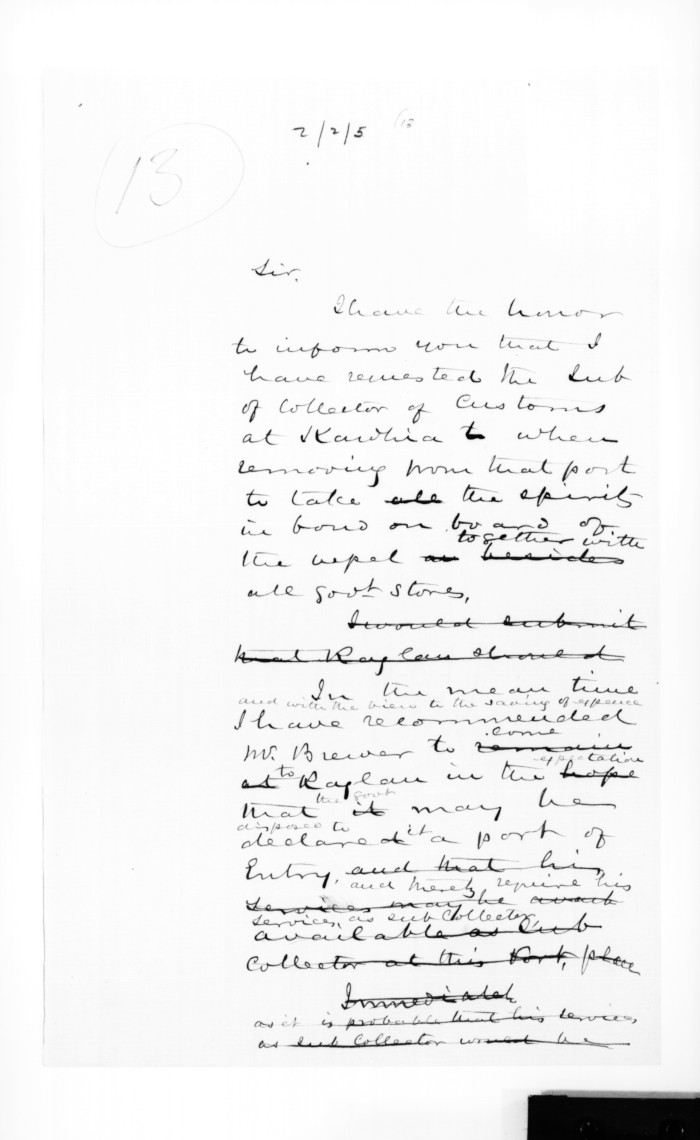 13
2/2/5
13
Sir.
I have the honor
to inform you that I
have requested the Sub
of Collector of Customs
at Kawhia to when
removing from that port
to take all the spirits
in bond on board of
together with
the vessel as besides
all Govt Stores,
I would submit
that Raglan should
In the mean time
and with the view to the saving of expence
I have recommended
come
Mr. Brewer to remain
to expectation
at Raglan in the hope
the Govt
that it may be
disposed to
declared it a port of
Entry, and that his
and thereby require his
services may be avail
services, as sub Collector,
available as Sub
Collector at this Port, place
Immediately
as it is probable that his services
as Sub Collector would be